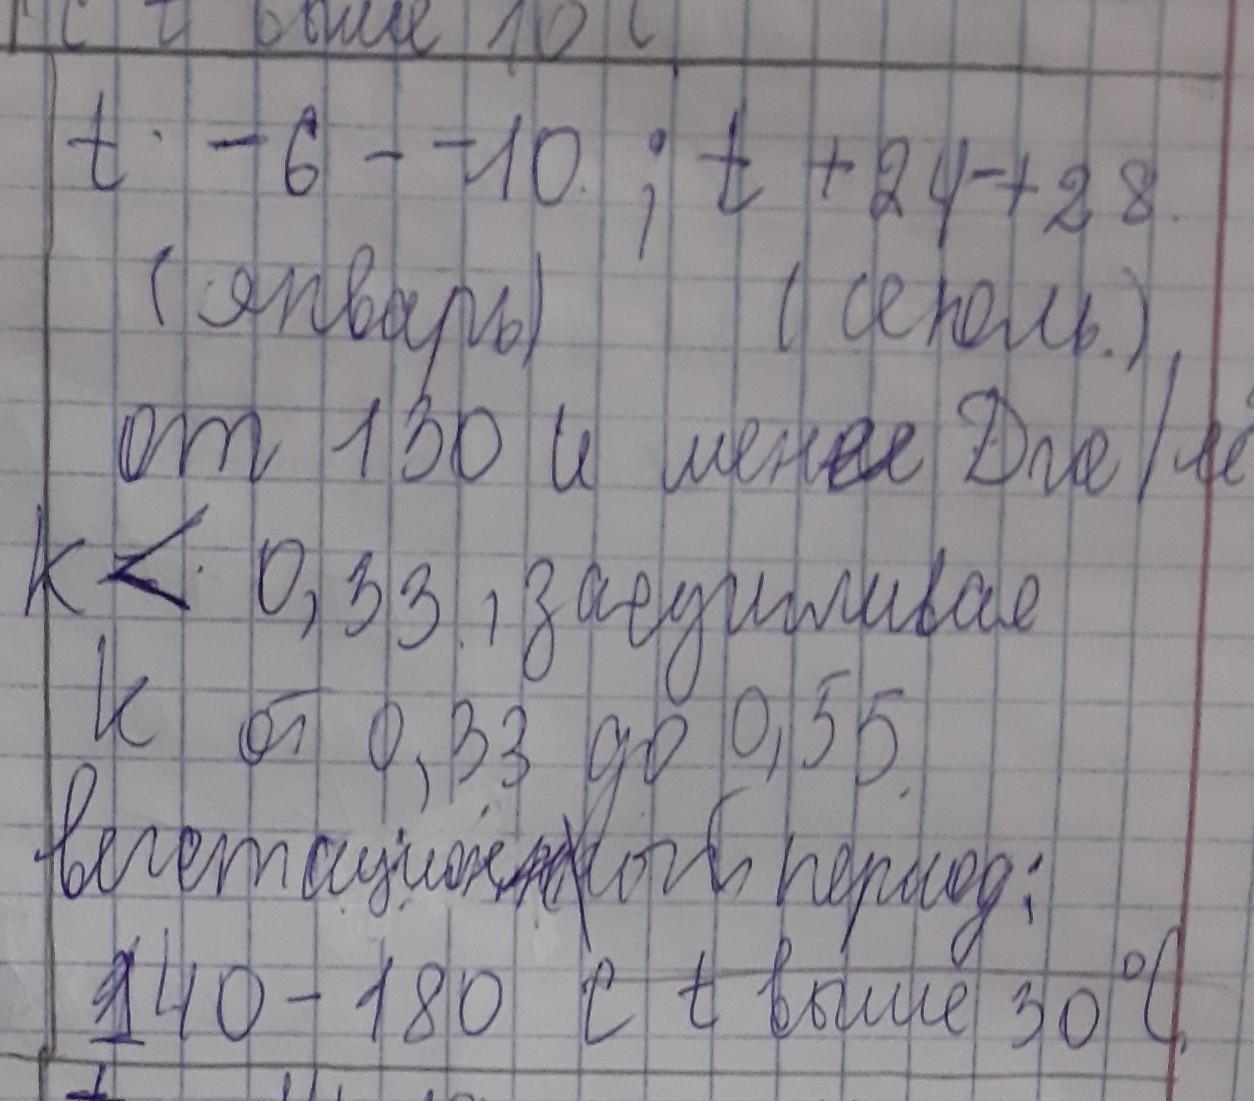 с t выше 10 С
t · -6 - -10. ; t +24-+28.
(январь) (июль.)
от 130 и менее
k < 0,33.,
k от 0,33 до 0,55.
период:
140-180 с t выше 30°С